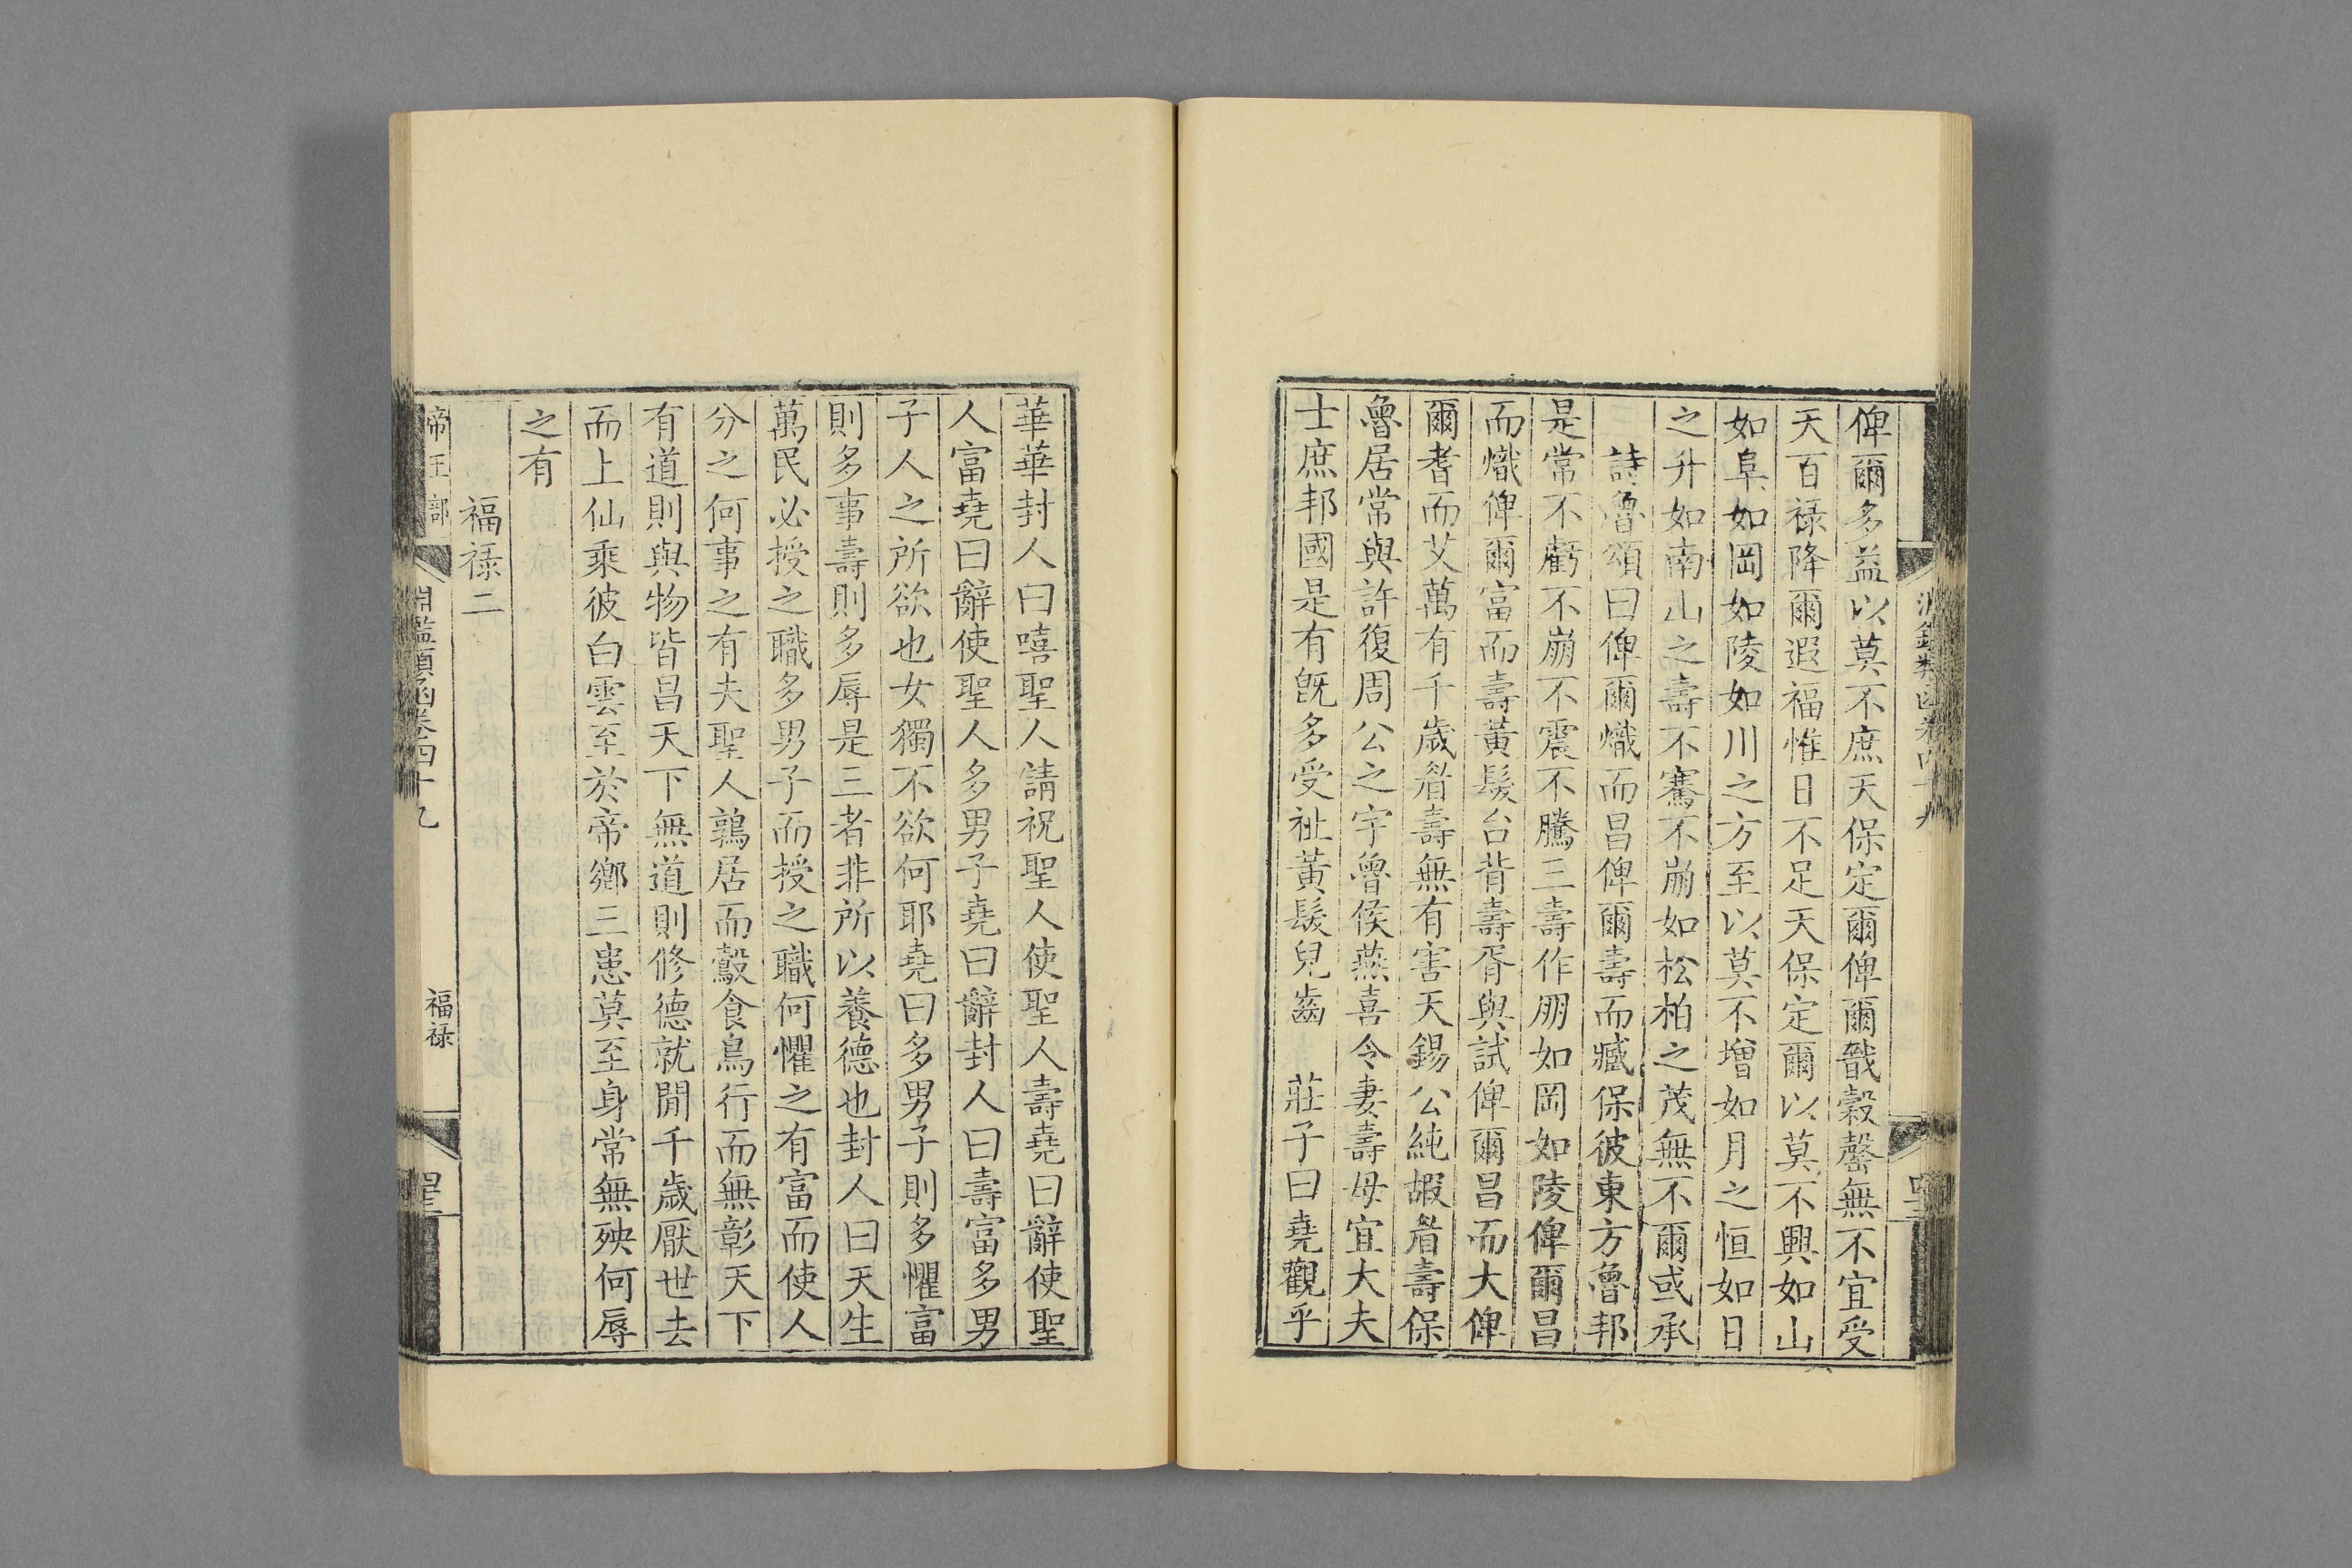 俾爾多益以莫不庶天保定爾俾爾戩穀罄無不宜受
天百祿降爾遐福惟日不足天保定爾以莫不興如山
如阜如岡如陵如川之方至以莫不增如月之恒如日
之升如南山之壽不騫不崩如松柏之茂無不爾或承
詩魯頌曰俾爾熾而昌俾爾壽而臧保彼東方魯邦
是常不虧不崩不震不騰三壽作朋如岡如陵俾爾昌
而熾俾爾富而壽黃髮台背壽胥與試俾爾昌而大俾
爾耆而艾萬有千歲眉壽無有害天錫公純嘏眉壽保
魯居常與許復周公之宇魯侯燕喜令妻壽母宜大夫
士庶邦國是有旣多受祉黃髮兒齒　莊子曰堯觀乎
華華封人曰嘻聖人請祝聖人使聖人壽堯曰辭使聖
人富堯曰辭使聖人多男子堯曰辭封人曰壽富多男
子人之所欲也女獨不欲何耶堯曰多男子則多懼富
則多事壽則多辱是三者非所以養德也封人曰天生
萬民必授之職多男子而授之職何懼之有富而使人
分之何事之有夫聖人鶉居而鷇食鳥行而無彰天下
有道則與物皆昌天下無道則修德就閒千歲厭世去
而上仙乘彼白雲至於帝鄉三患莫至身常無殃何辱
之有
福祿二
帝王部
淵鑑類函卷四十九
福祿